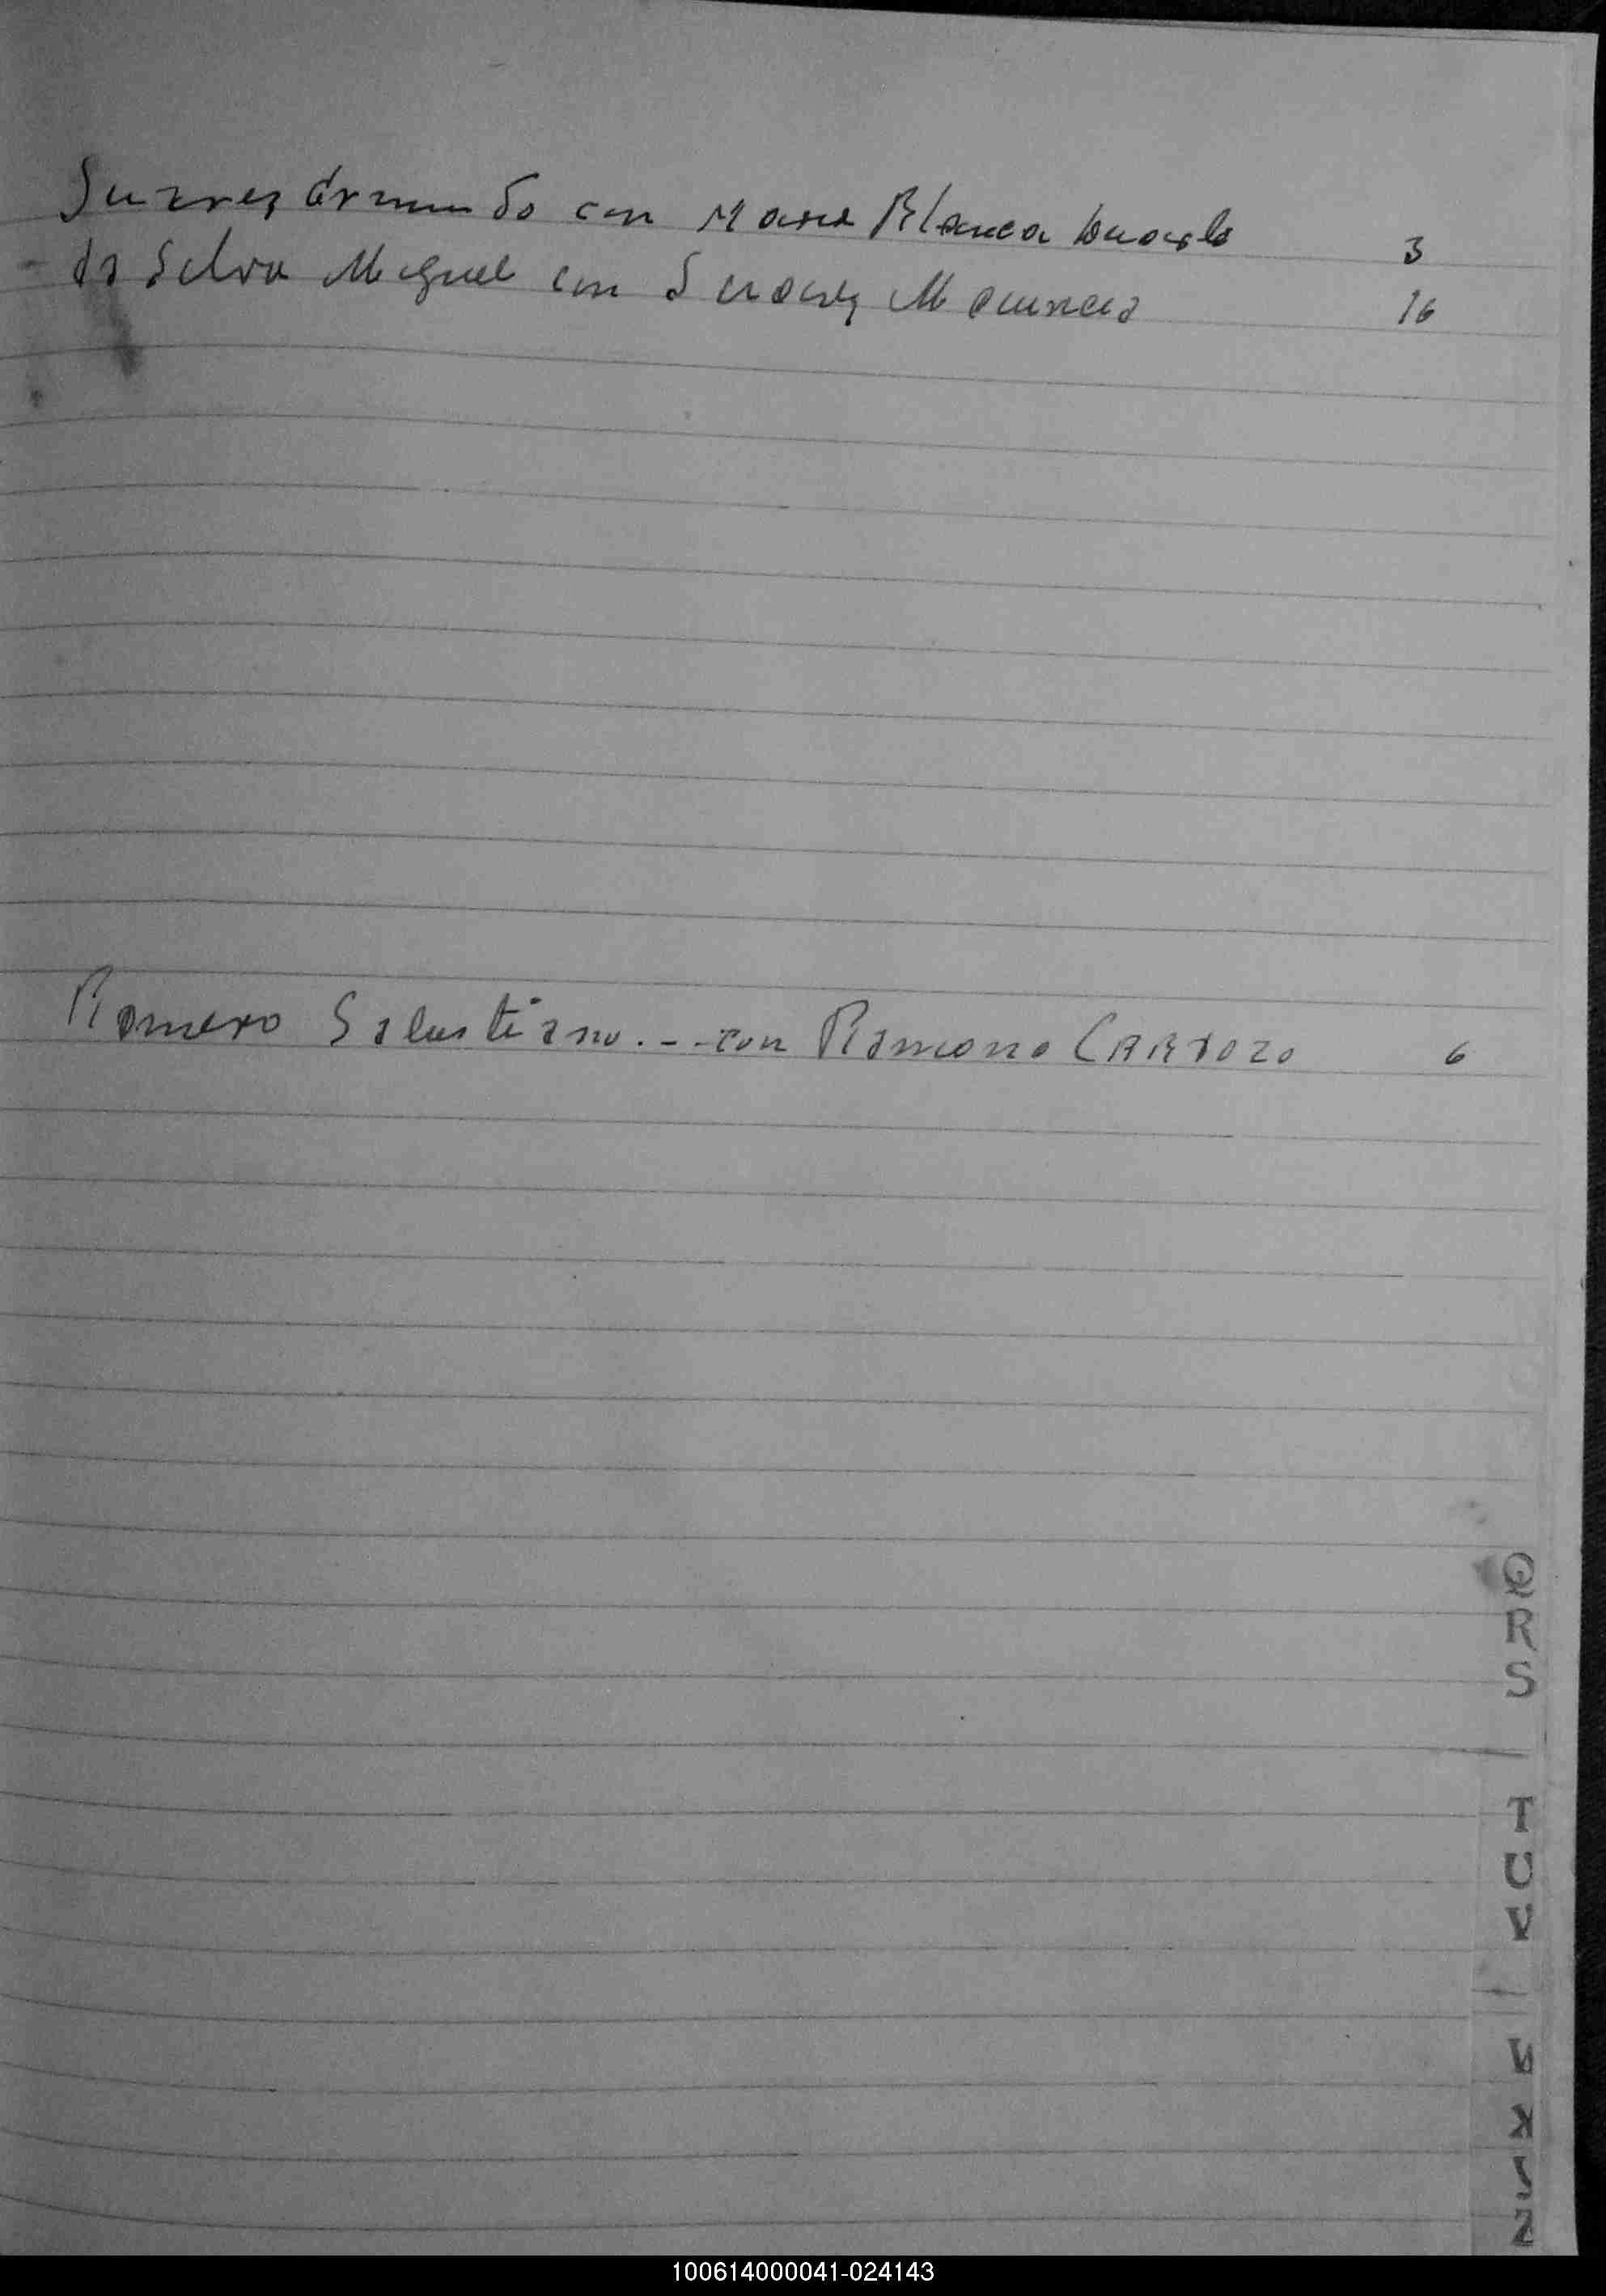 Suarez Armando con Maria Blanca 3
da Silva Miguel con Suarez Mauricia 16
Romero Salustiano . - - con Ramona CARDOZO 6
Q
R
S
T
U
V
X
Z
100614000041-024143